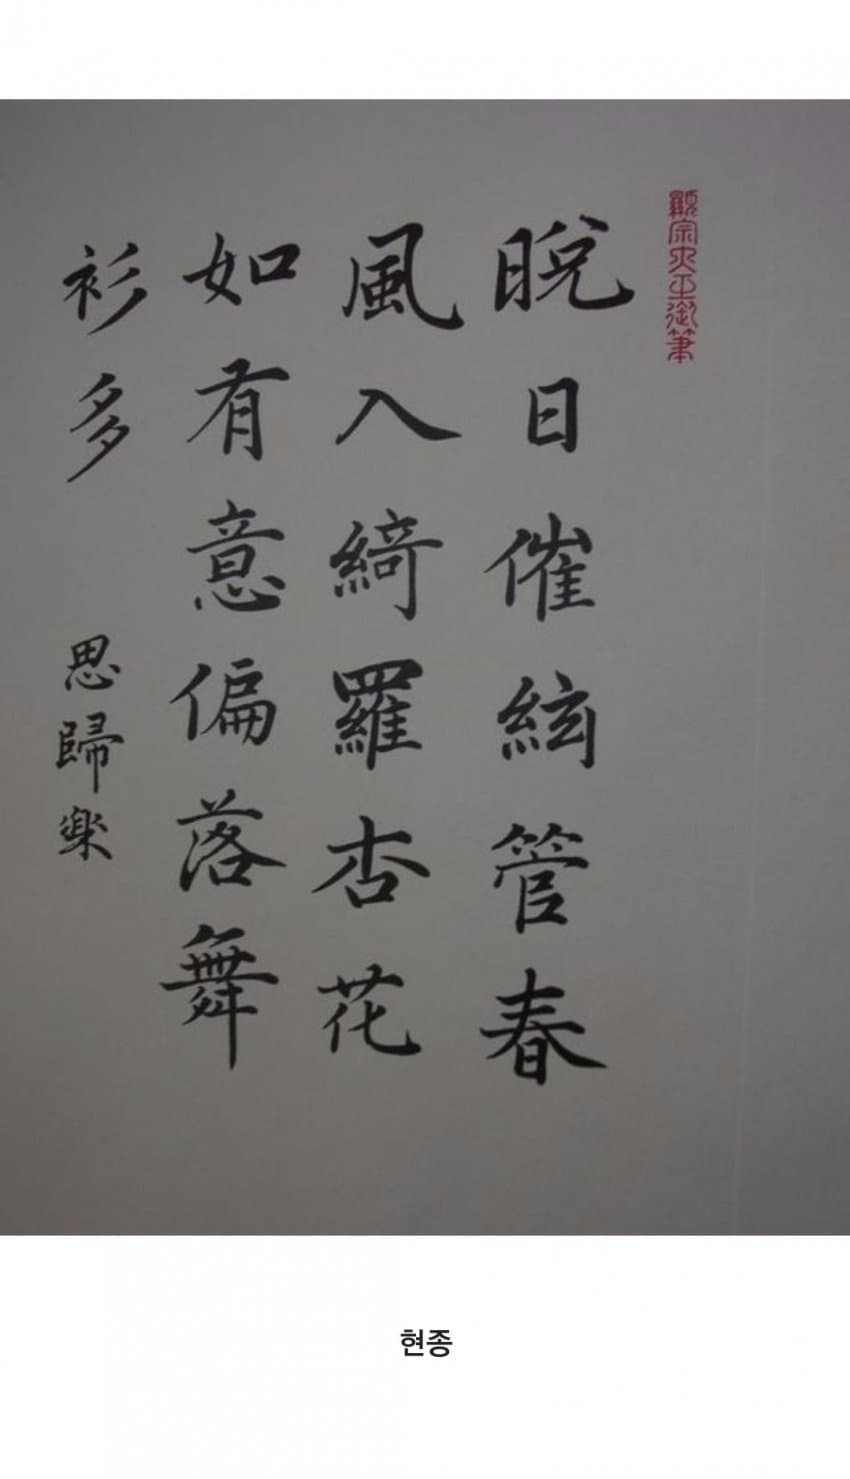 顯宗大王御筆
晩日催絃管春
風入綺羅杏花
如有意偏落舞
衫多
思歸樂
현종